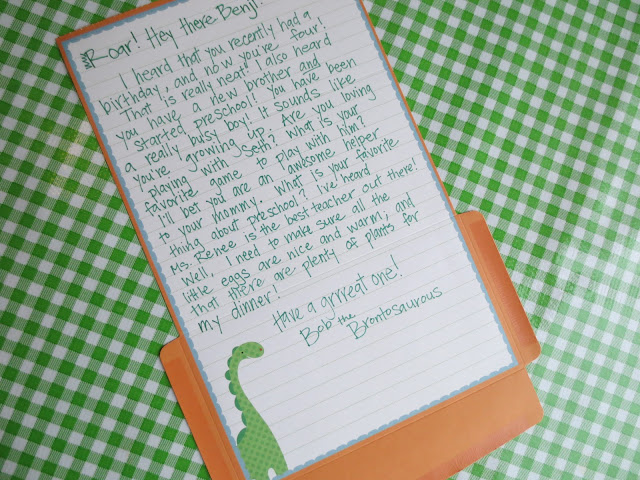 Roar! Hey there Benji!
I heard that you recently had a
birthday, and now you're four!
That is really neat! I also heard
you have a new brother and
started preschool! You have been
a really busy boy! It sounds like
you're growing up. Are you loving
playing with Seth? What is your
favorite game to play with him?
I'll bet you are an awesome helper
to your mommy. What is your favorite
thing about preschool? I've heard
Ms. Renee is the best teacher out there!
Well, I need to make sure all the
little eggs are nice and warm, and
that there are plenty of plants for
my dinner!
Have a grrreat one!
Bob the
Brontosaurous